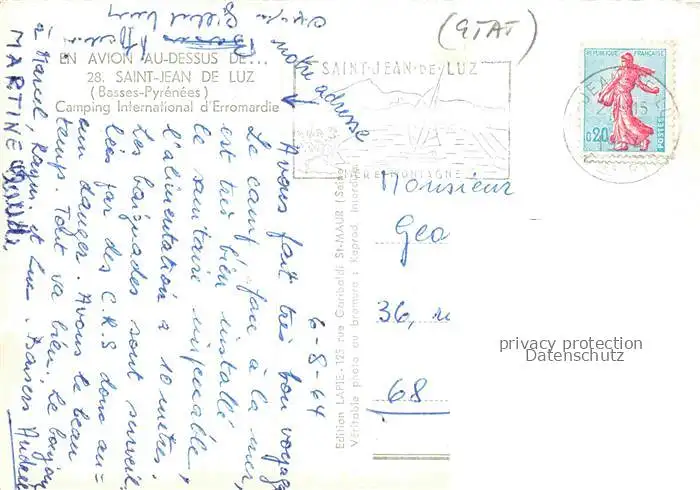 (GTAT)
EN AVION AU-DESSUS DE...
28. SAINT-JEAN DE LUZ
(Basses-Pyrénées)
Camping International d'Erromardie
notre adresse
SAINT-JEAN-DE-LUZ
MER MONTAGNE
REPUBLIQUE FRANÇAISE
0,20
POSTES
6-8-64
Avons fait très bon voyage
Le camp, face à la mer,
est très bien installé
le sanitaire impeccable,
l'alimentation à 10 mètres.
Les baignades sont surveil
lées par des C.R.S donc au=
cun danger. Avons le beau
temps. Tout va bien. Le bonjour
à Marcel, et Luc. Baisers
MARTINE
Edition LAPIE - 125 rue Garibaldi St-MAUR (Seine)
Véritable photo au bromure : Reprod. interdite
Monsieur
Geo
36,
68
privacy protection
Datenschutz